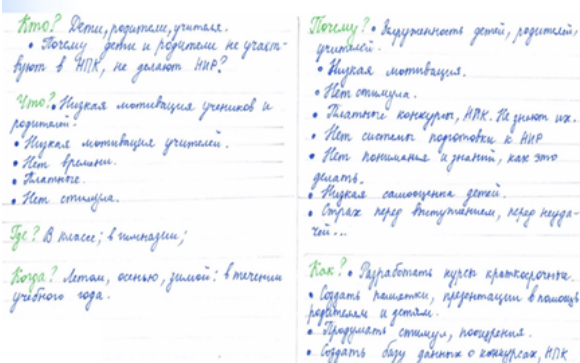 Кто? Дети, родители, учителя.
• Почему дети и родители не участ-
вуют в НПК, не делают НИР?
Что? • Низкая мотивация учеников и
родителей.
• Низкая мотивация учителей.
• Нет времени.
• Платные.
• Нет стимула.
Где? В классе; в гимназии;
Когда? Летом, осенью, зимой: в течении
учебного года.
Почему? • Загруженность детей, родителей,
учителей.
• Низкая мотивация.
• Нет стимула.
• Платные конкурсы, НПК. Не знают их.
• Нет системы подготовки к НИР
• Нет понимания и знаний, как это
делать.
• Низкая самооценка детей.
• Страх перед выступлением, перед неуда-
чей...
Как? • Разработать курсы краткосрочные.
• Создать памятки, презентации в помощь
родителям и детям.
• Продумать стимул, поощрения.
• Создать базу данных о конкурсах, НПК